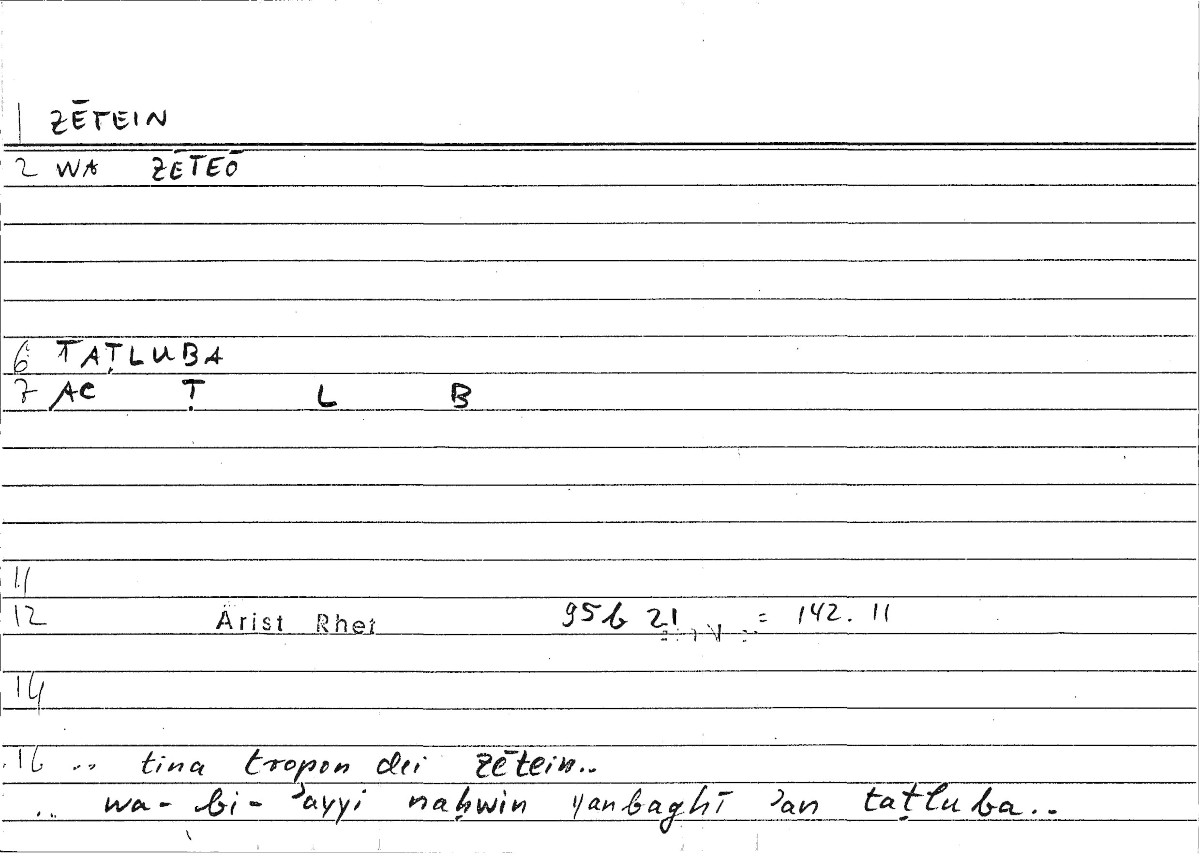 1 ZĒTEIN
2 WA ZĒTEŌ
6 TAṬLUBA
7 AC Ṭ L B
11
12 Arist Rhet 95b 21 = 142.11
14
16 .. tina tropon dei zētein..
.. wa-bi-ʾayyi naḥwin yanbaghī ʾan taṭluba..